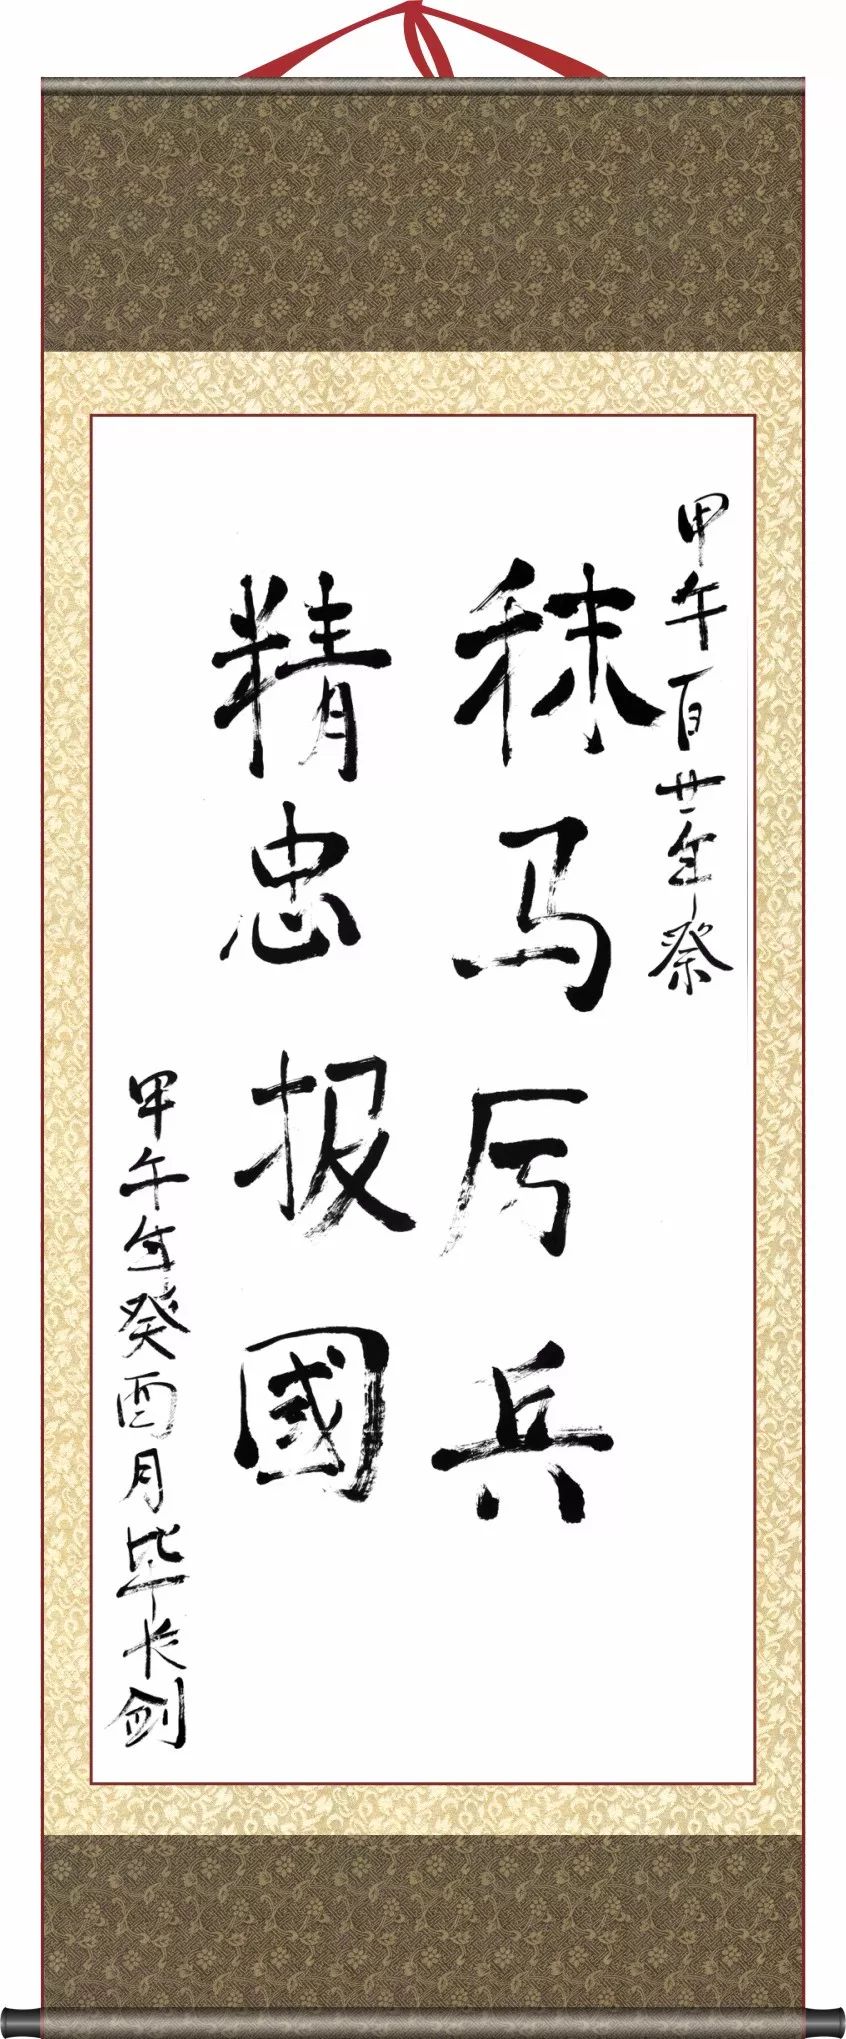 甲午百廿年祭
秣马厉兵
精忠报國
甲午年癸酉月毕长剑